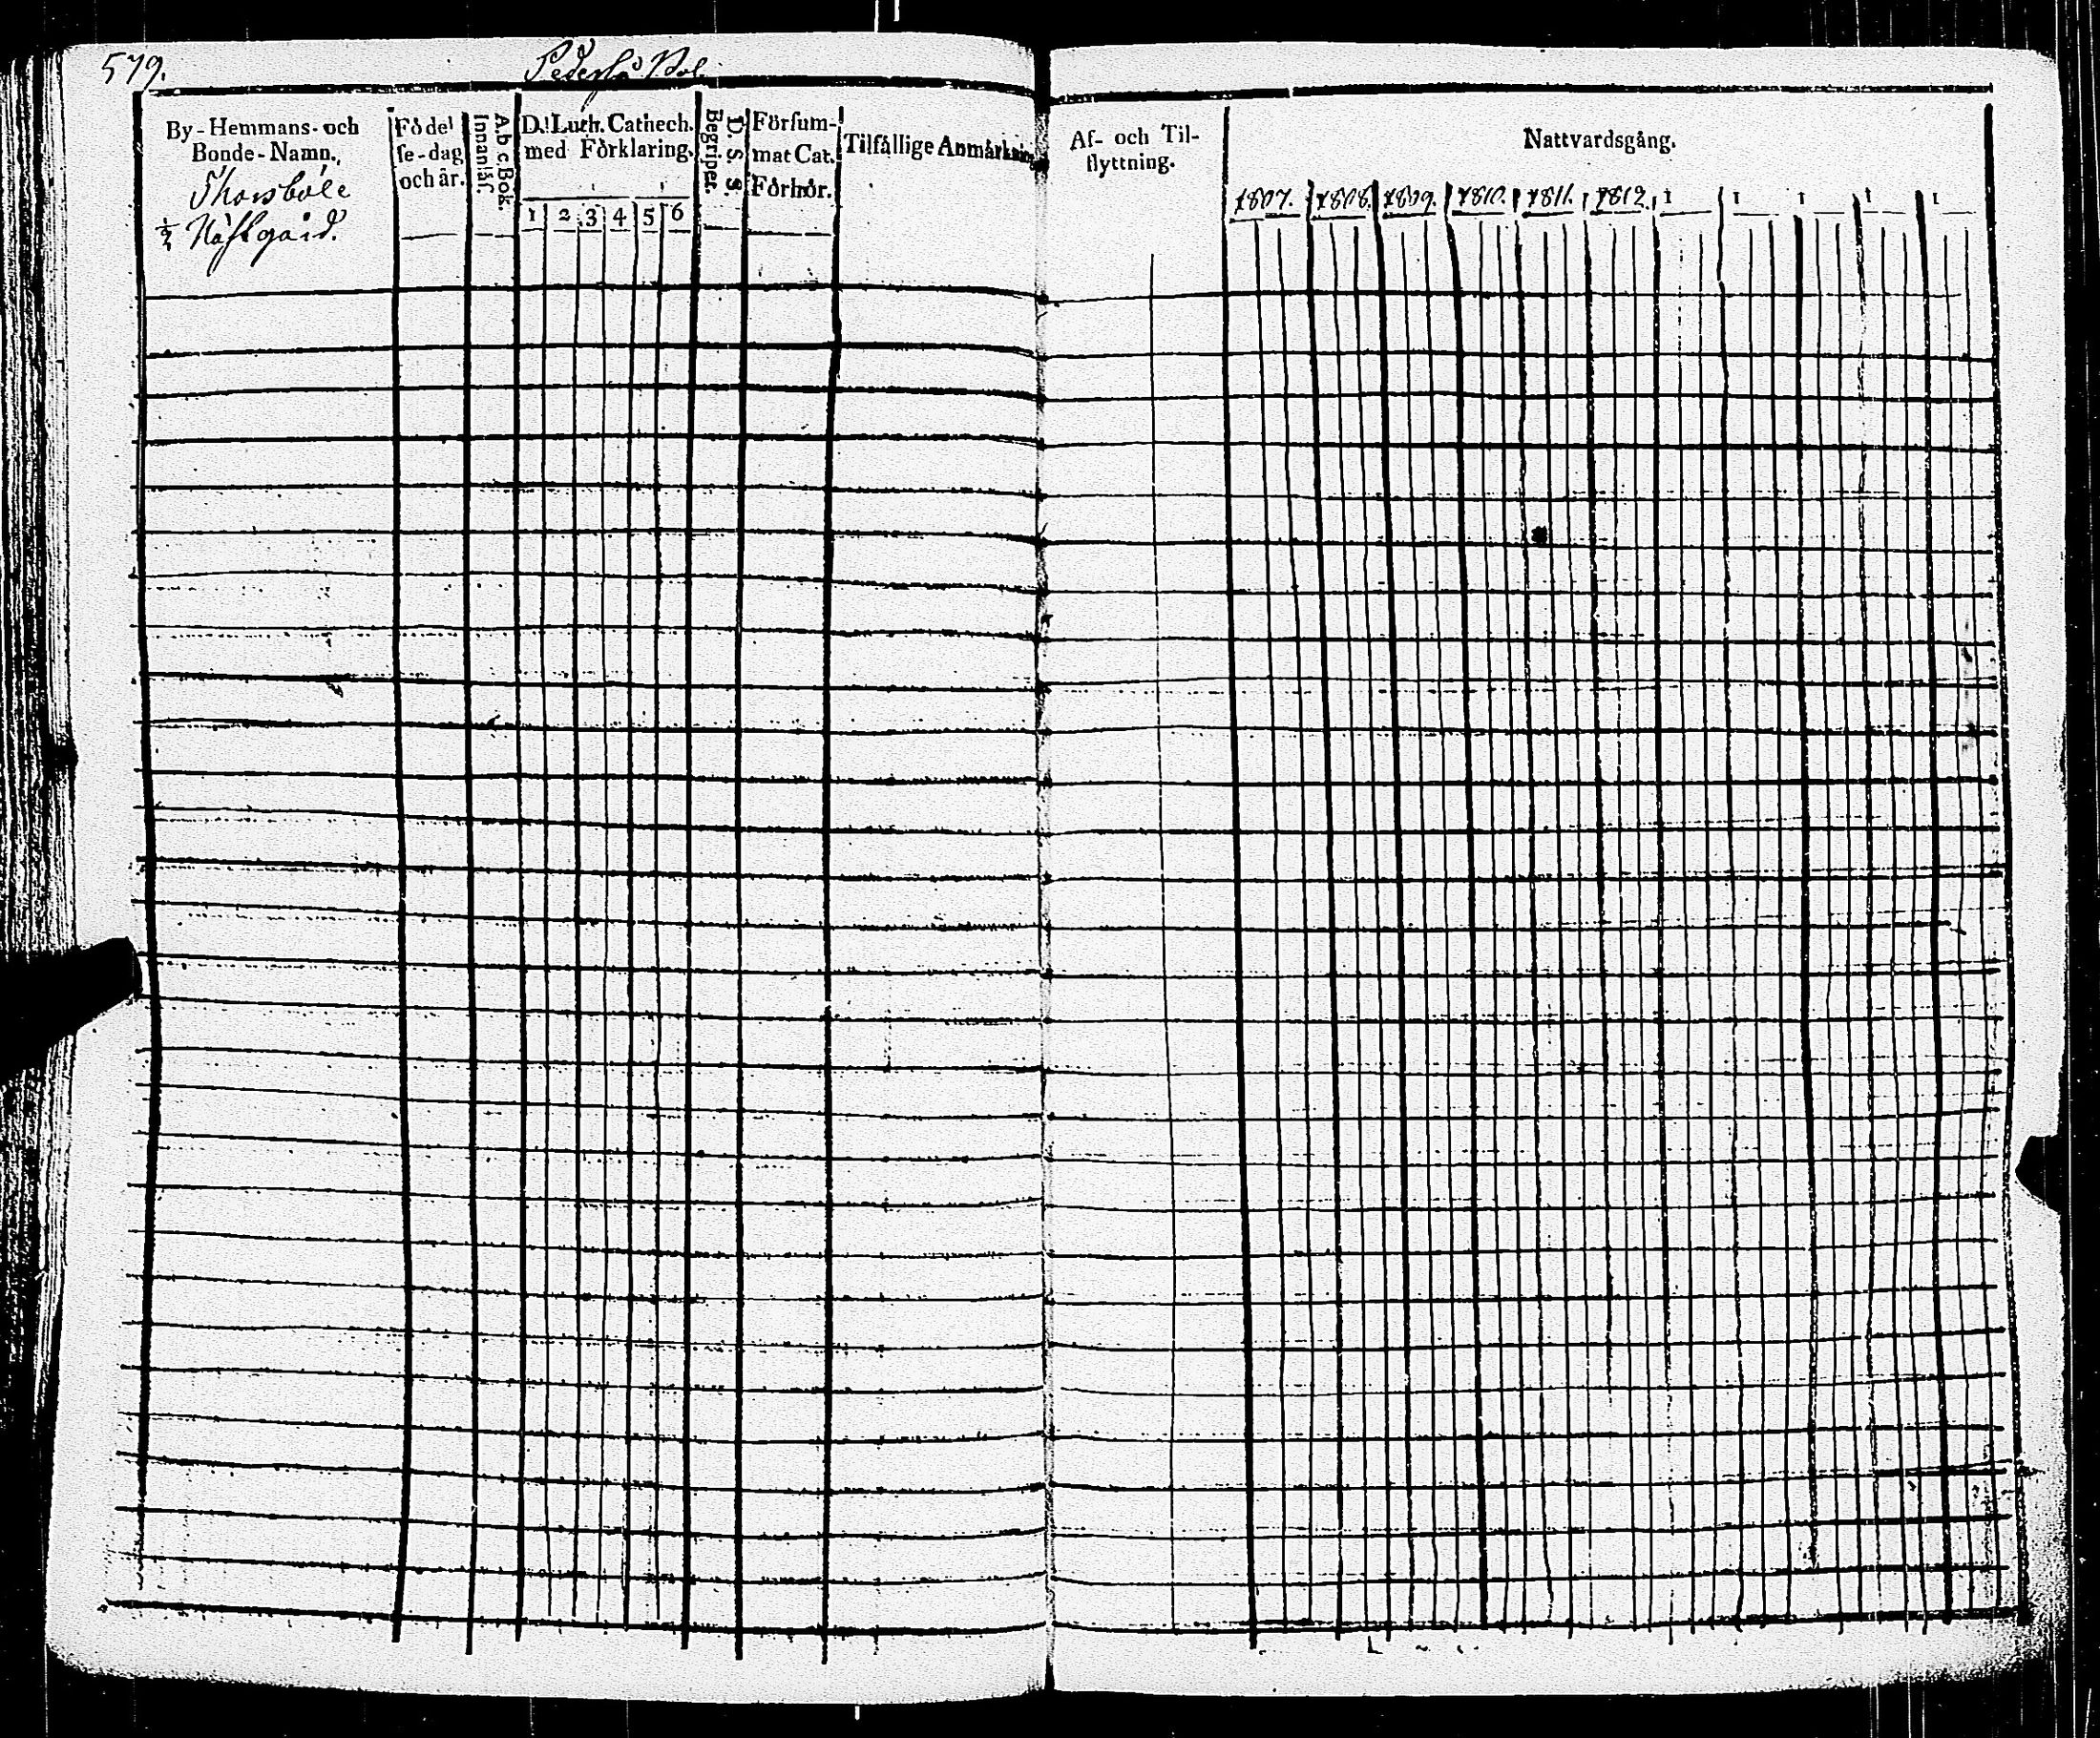 579.
Pedersö Bol.
By-Hemmans- och
Bonde-Namn.
Thorsbole
½ Näsgård.
Födel
se-dag
och år.
A.b c.Bok.
Innanläs.
D.! Luth. Cathech.
med Förklaring.
1 2 3 4 5 6
D. S. S.
Begriper.
Försum-
mat Cat.
Förhör.
Tilfällige Anmärkning
Af- och Til-
flyttning.
Nattvardsgång.
1807. 1808. 1809. 1810. 1811. 1812. 1 1 1 1 1